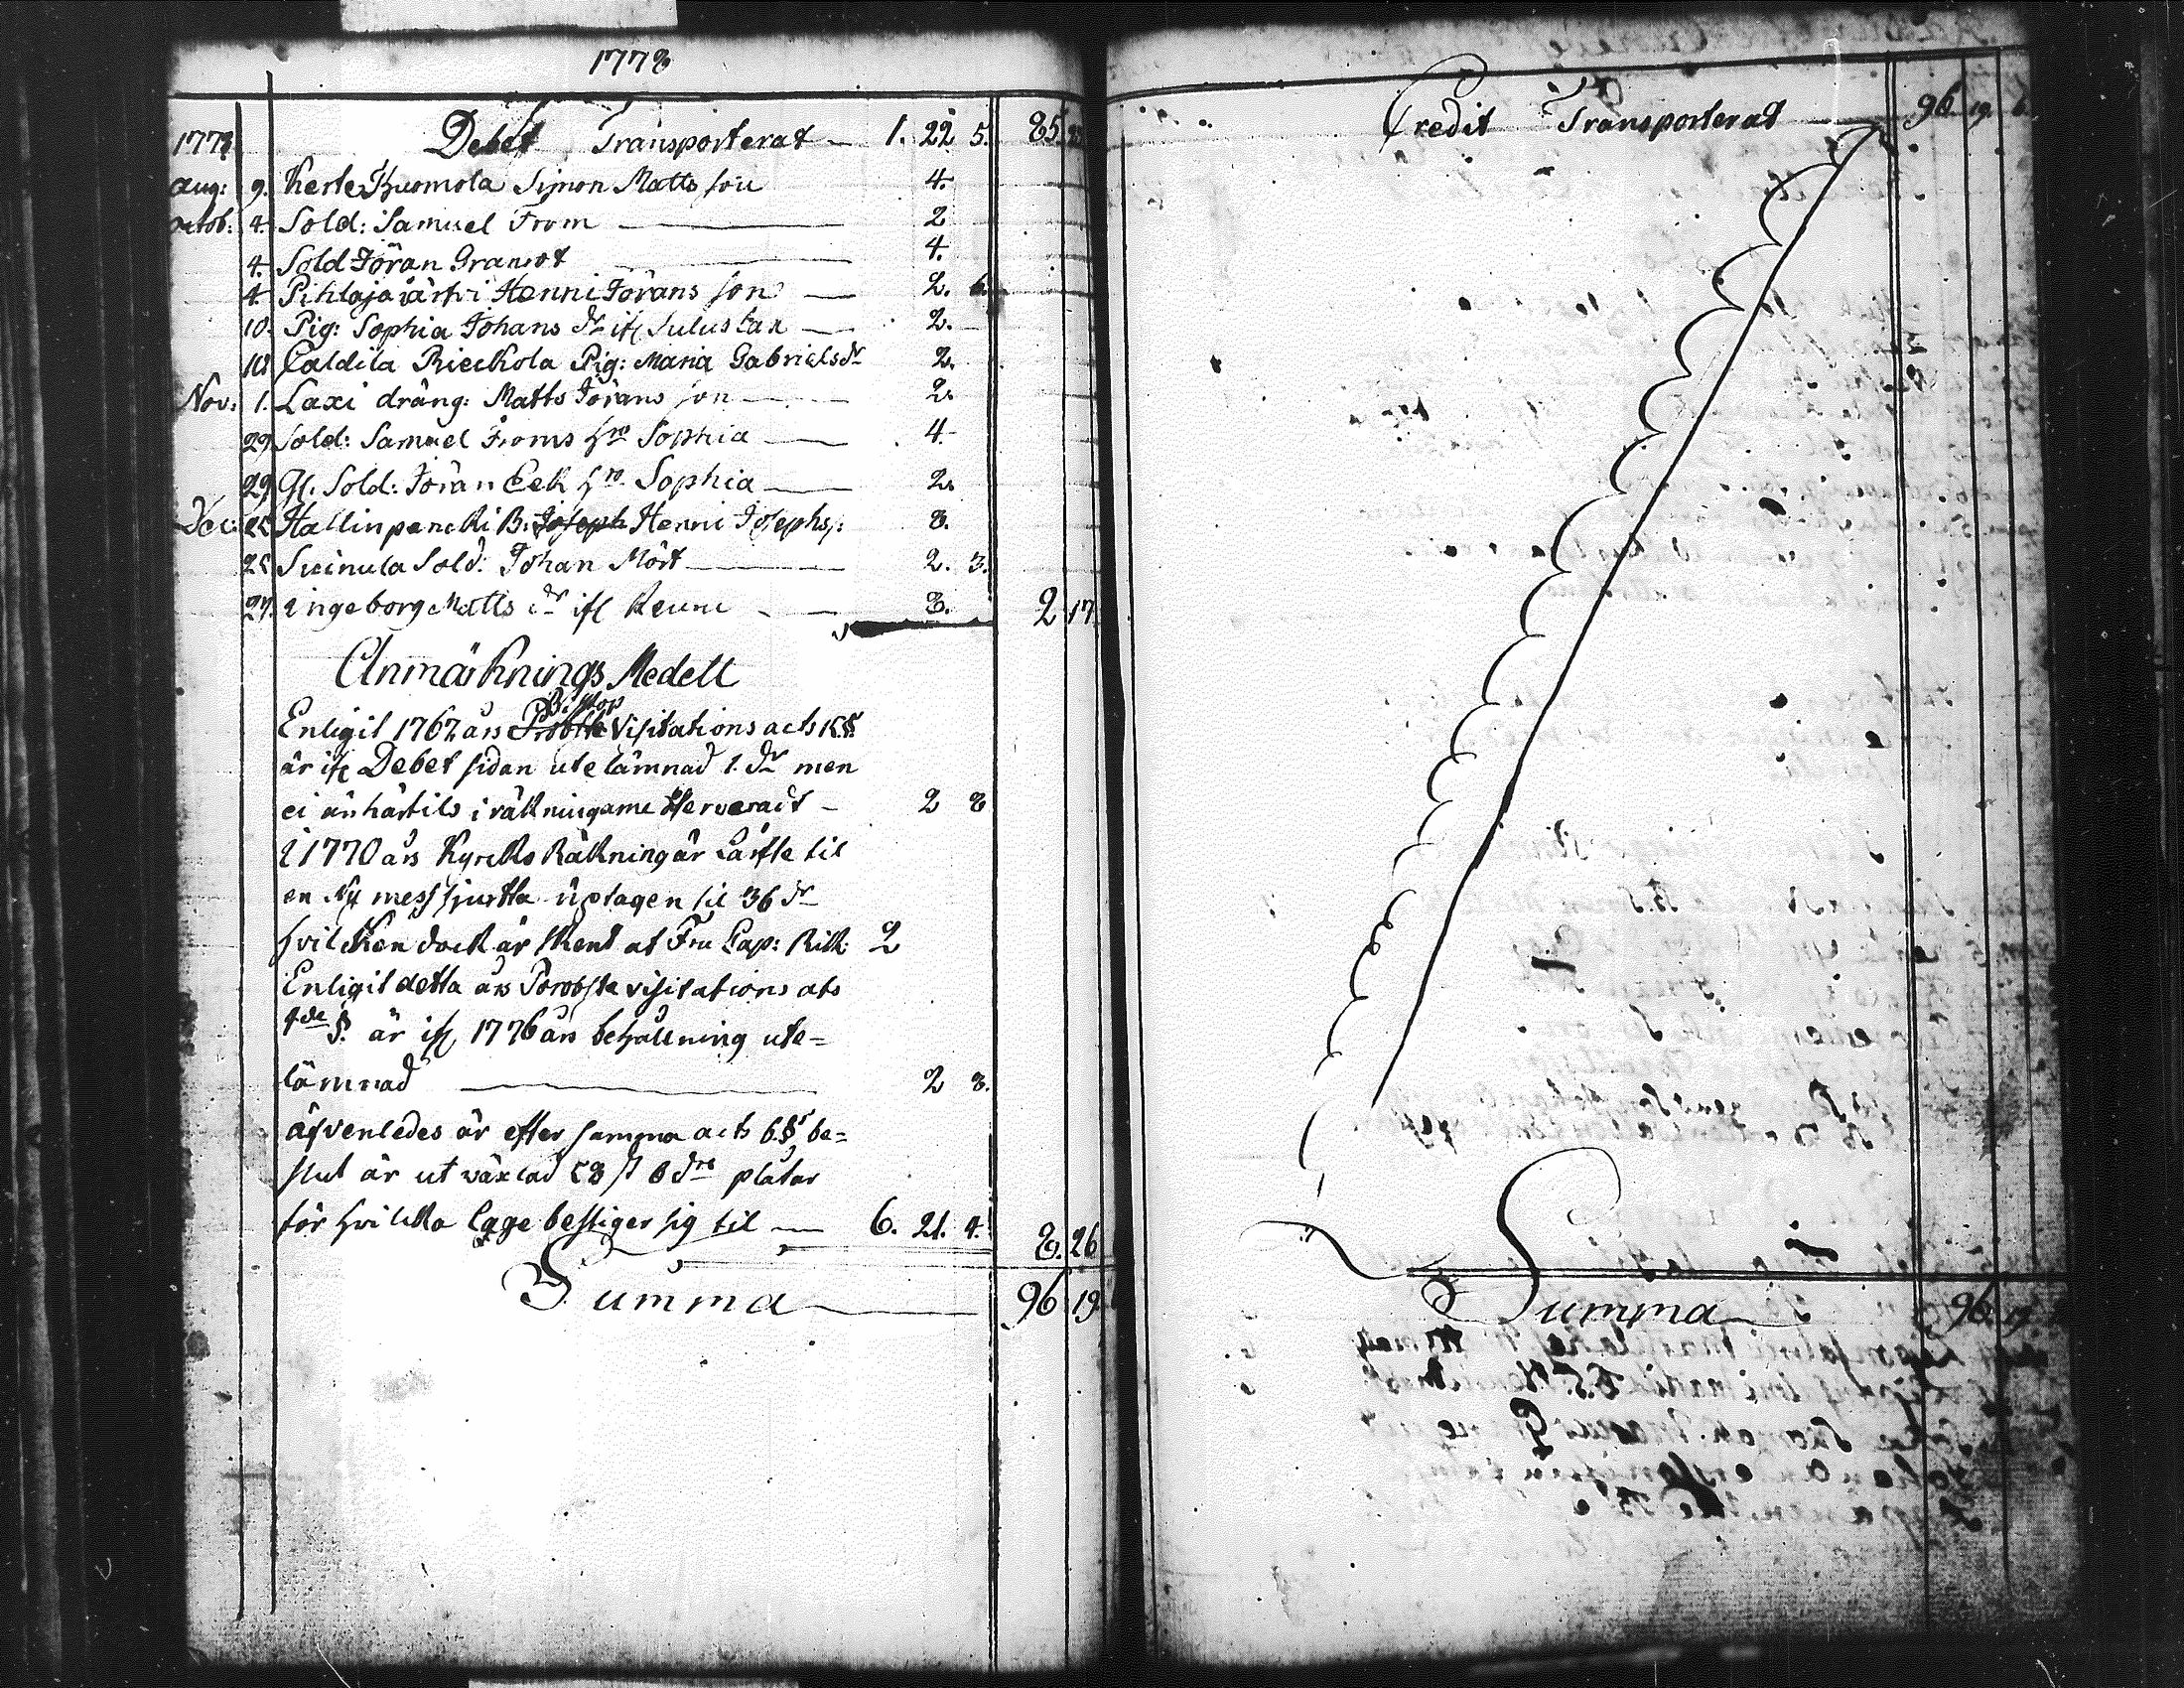 1778
1778 Debet Transporterat 1. 22 5. 85.
Aug: 9. Kerte Simon Matts son 4.
Octob: 4. Sold: Samuel From 2
4. Sold Jöran Granrot 4.
4. Pihlajajärfvi Henni Jörans son 2. 6.
10. Pig: Sophia Johans dr ifr Sulustan 2.
10 Caldila Rieckola Pig: Maria Gabrielsdr 2.
Nov: 1. Laxi dräng: Matts Jörans son 2.
29 Sold: Samuel Froms hro Sophia 4.
29 Gl. Sold: Jöran Eek hro Sophia 2.
Dec: 25 Hallinpencki B: Joseph Henni Josephs: 8.
25 Suinula Sold: Johan Mört 2. 3.
27. Ingeborg Matts dr ifr Keuru 8. 2 17.
Anmärknings Medell
Bishop
Enligit 1767 års Probste Visitations acts 15 §
är ifr Debet sidan utelämnad 1. dr men
ei än härtils i räkningarne 2 8
I 1770 års Kyrcko Räkning är Lärfte til
en Ny mess sjurtta uptagen til 36 dr
hvilcken dock är skent af Fru Cap: Rik: 2
Enligit detta års Porobste visitations ats
§. är ifr 1776 års behållning ute=
lämnad 2 8.
äfvenledes är efter samma acts 6. § be=
slut är ut växlad 58 st 6 dre plåtar
för hvilcka lage bestiger sig til 6. 21. 4. 8. 26
Summa 96 19
Credit Transporterat 96. 19. 6
Summa 96. 19